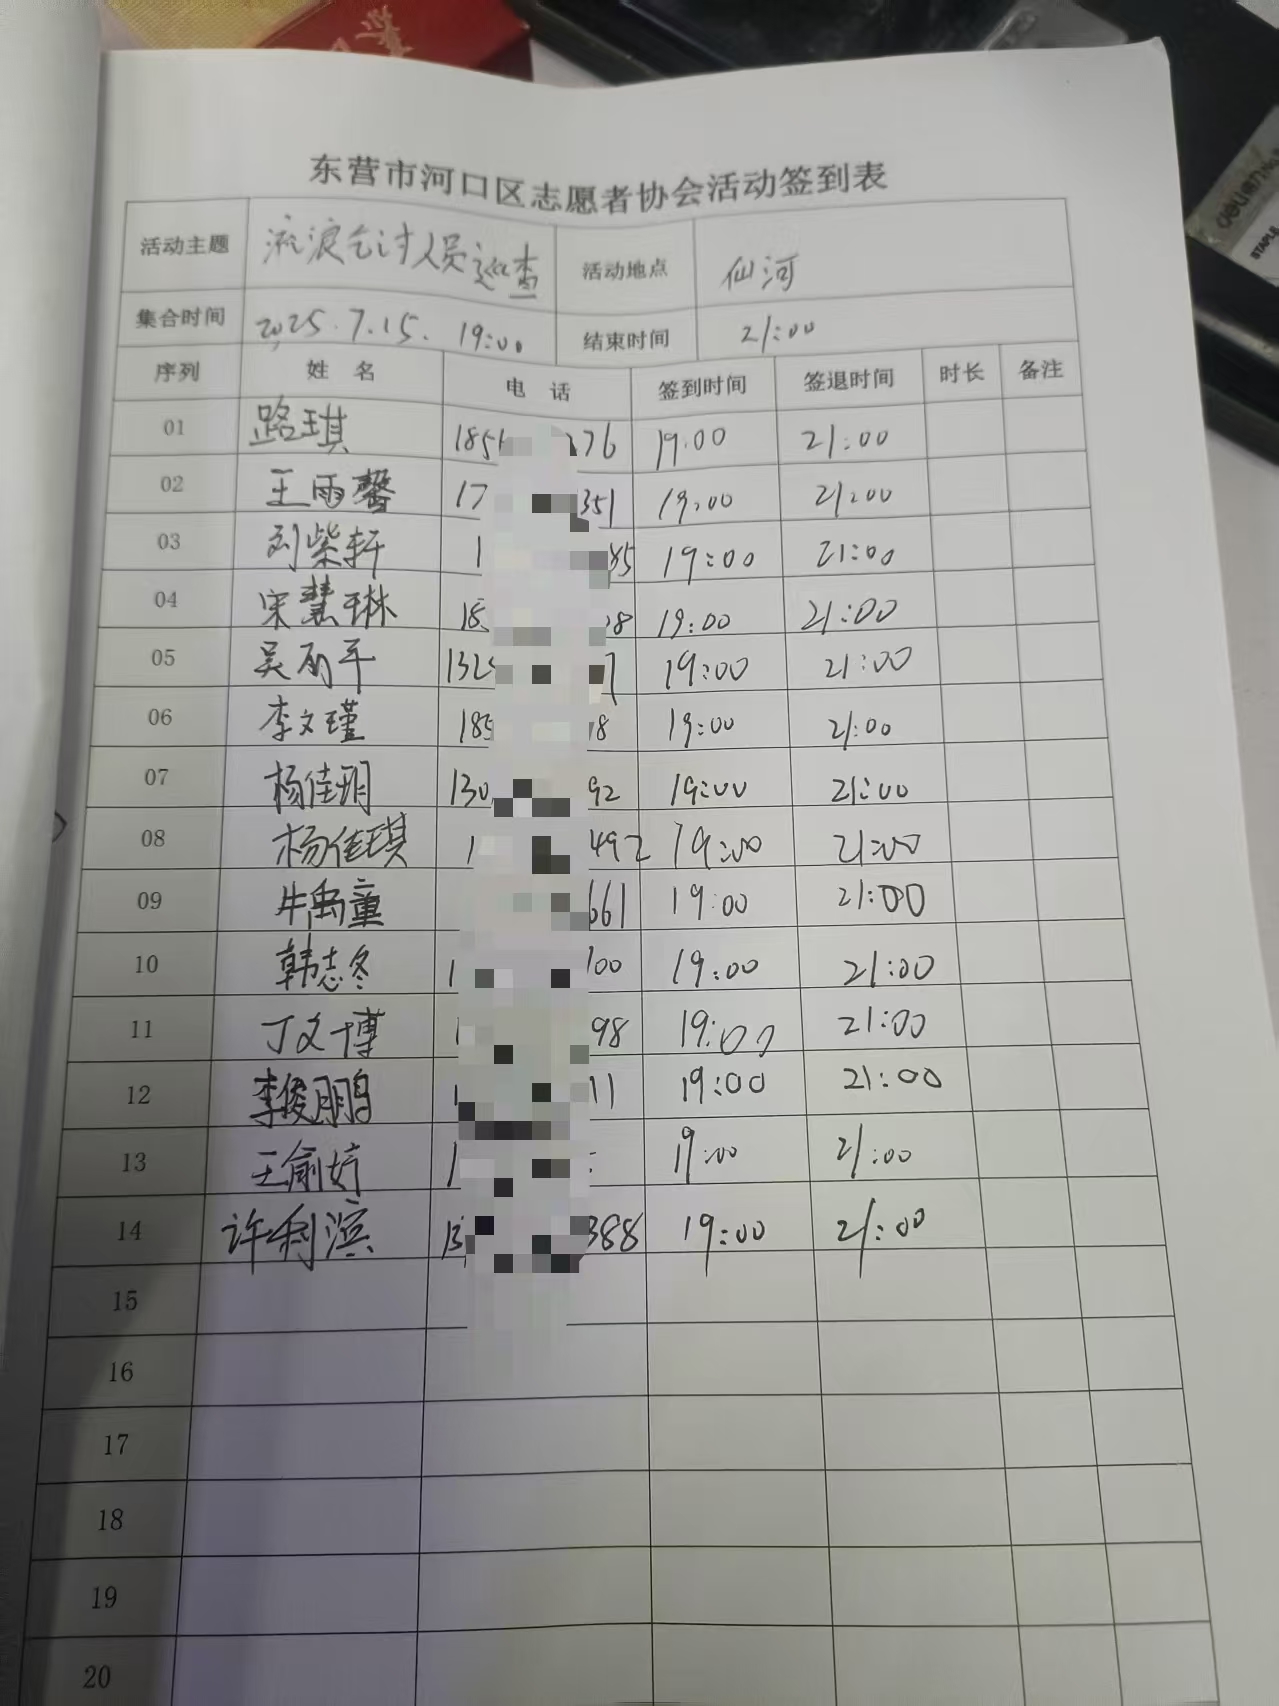 东营市河口区志愿者协会活动签到表
活动主题 流浪乞讨人员巡查 活动地点 仙河
集合时间 2025.7.15. 19:00 结束时间 21:00
序列 姓名 电话 签到时间 签退时间 时长 备注
01 路琪 185 276 19:00 21:00
02 王雨馨 17 351 19:00 21:00
03 刘紫轩 1 85 19:00 21:00
04 宋慧琳 18 08 19:00 21:00
05 吴丽平 132 7 19:00 21:00
06 李文瑾 185 18 19:00 21:00
07 杨佳玥 130 92 19:00 21:00
08 杨佳琪 1 492 19:00 21:00
09 牛禹童 661 19:00 21:00
10 韩志冬 1 100 19:00 21:00
11 丁文博 1 98 19:00 21:00
12 李俊鹏 1 11 19:00 21:00
13 王俞婷 1 19:00 21:00
14 许利滨 13 388 19:00 21:00
15
16
17
18
19
20
deli
STAPLE